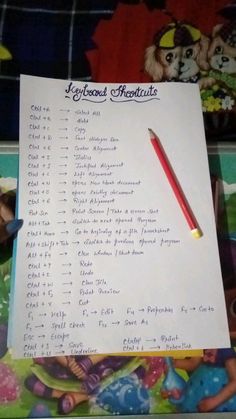 Keyboard Shortcuts
Ctrl + A → Select All
Ctrl + B → Bold
Ctrl + C → Copy
Ctrl + D → Font Dialogue Box
Ctrl + E → Center Alignment
Ctrl + I → Italic
Ctrl + J → Justified Alignment
Ctrl + L → Left Alignment
Ctrl + N → opens New blank document
Ctrl + O → opens Existing document
Ctrl + R → Right Alignment
Prt Scn → Print Screen / Take a screen shot
Alt + Tab → Switch to next opened Program
Ctrl + Home → Go to beginning of file / worksheet
Alt + Shift + Tab → Switch to previous opened program
Alt + F4 → Close window / Shut down
Ctrl + Y → Redo
Ctrl + Z → Undo
Ctrl + W → Close File
Ctrl + F2 → Print Preview
Ctrl + X → Cut
F1 → Help F2 → Edit F4 → F5 → Go to
F7 → Spell Check F12 → Save As
Esc → Escape → Print
Ctrl + S → Save
Ctrl + U → Underline